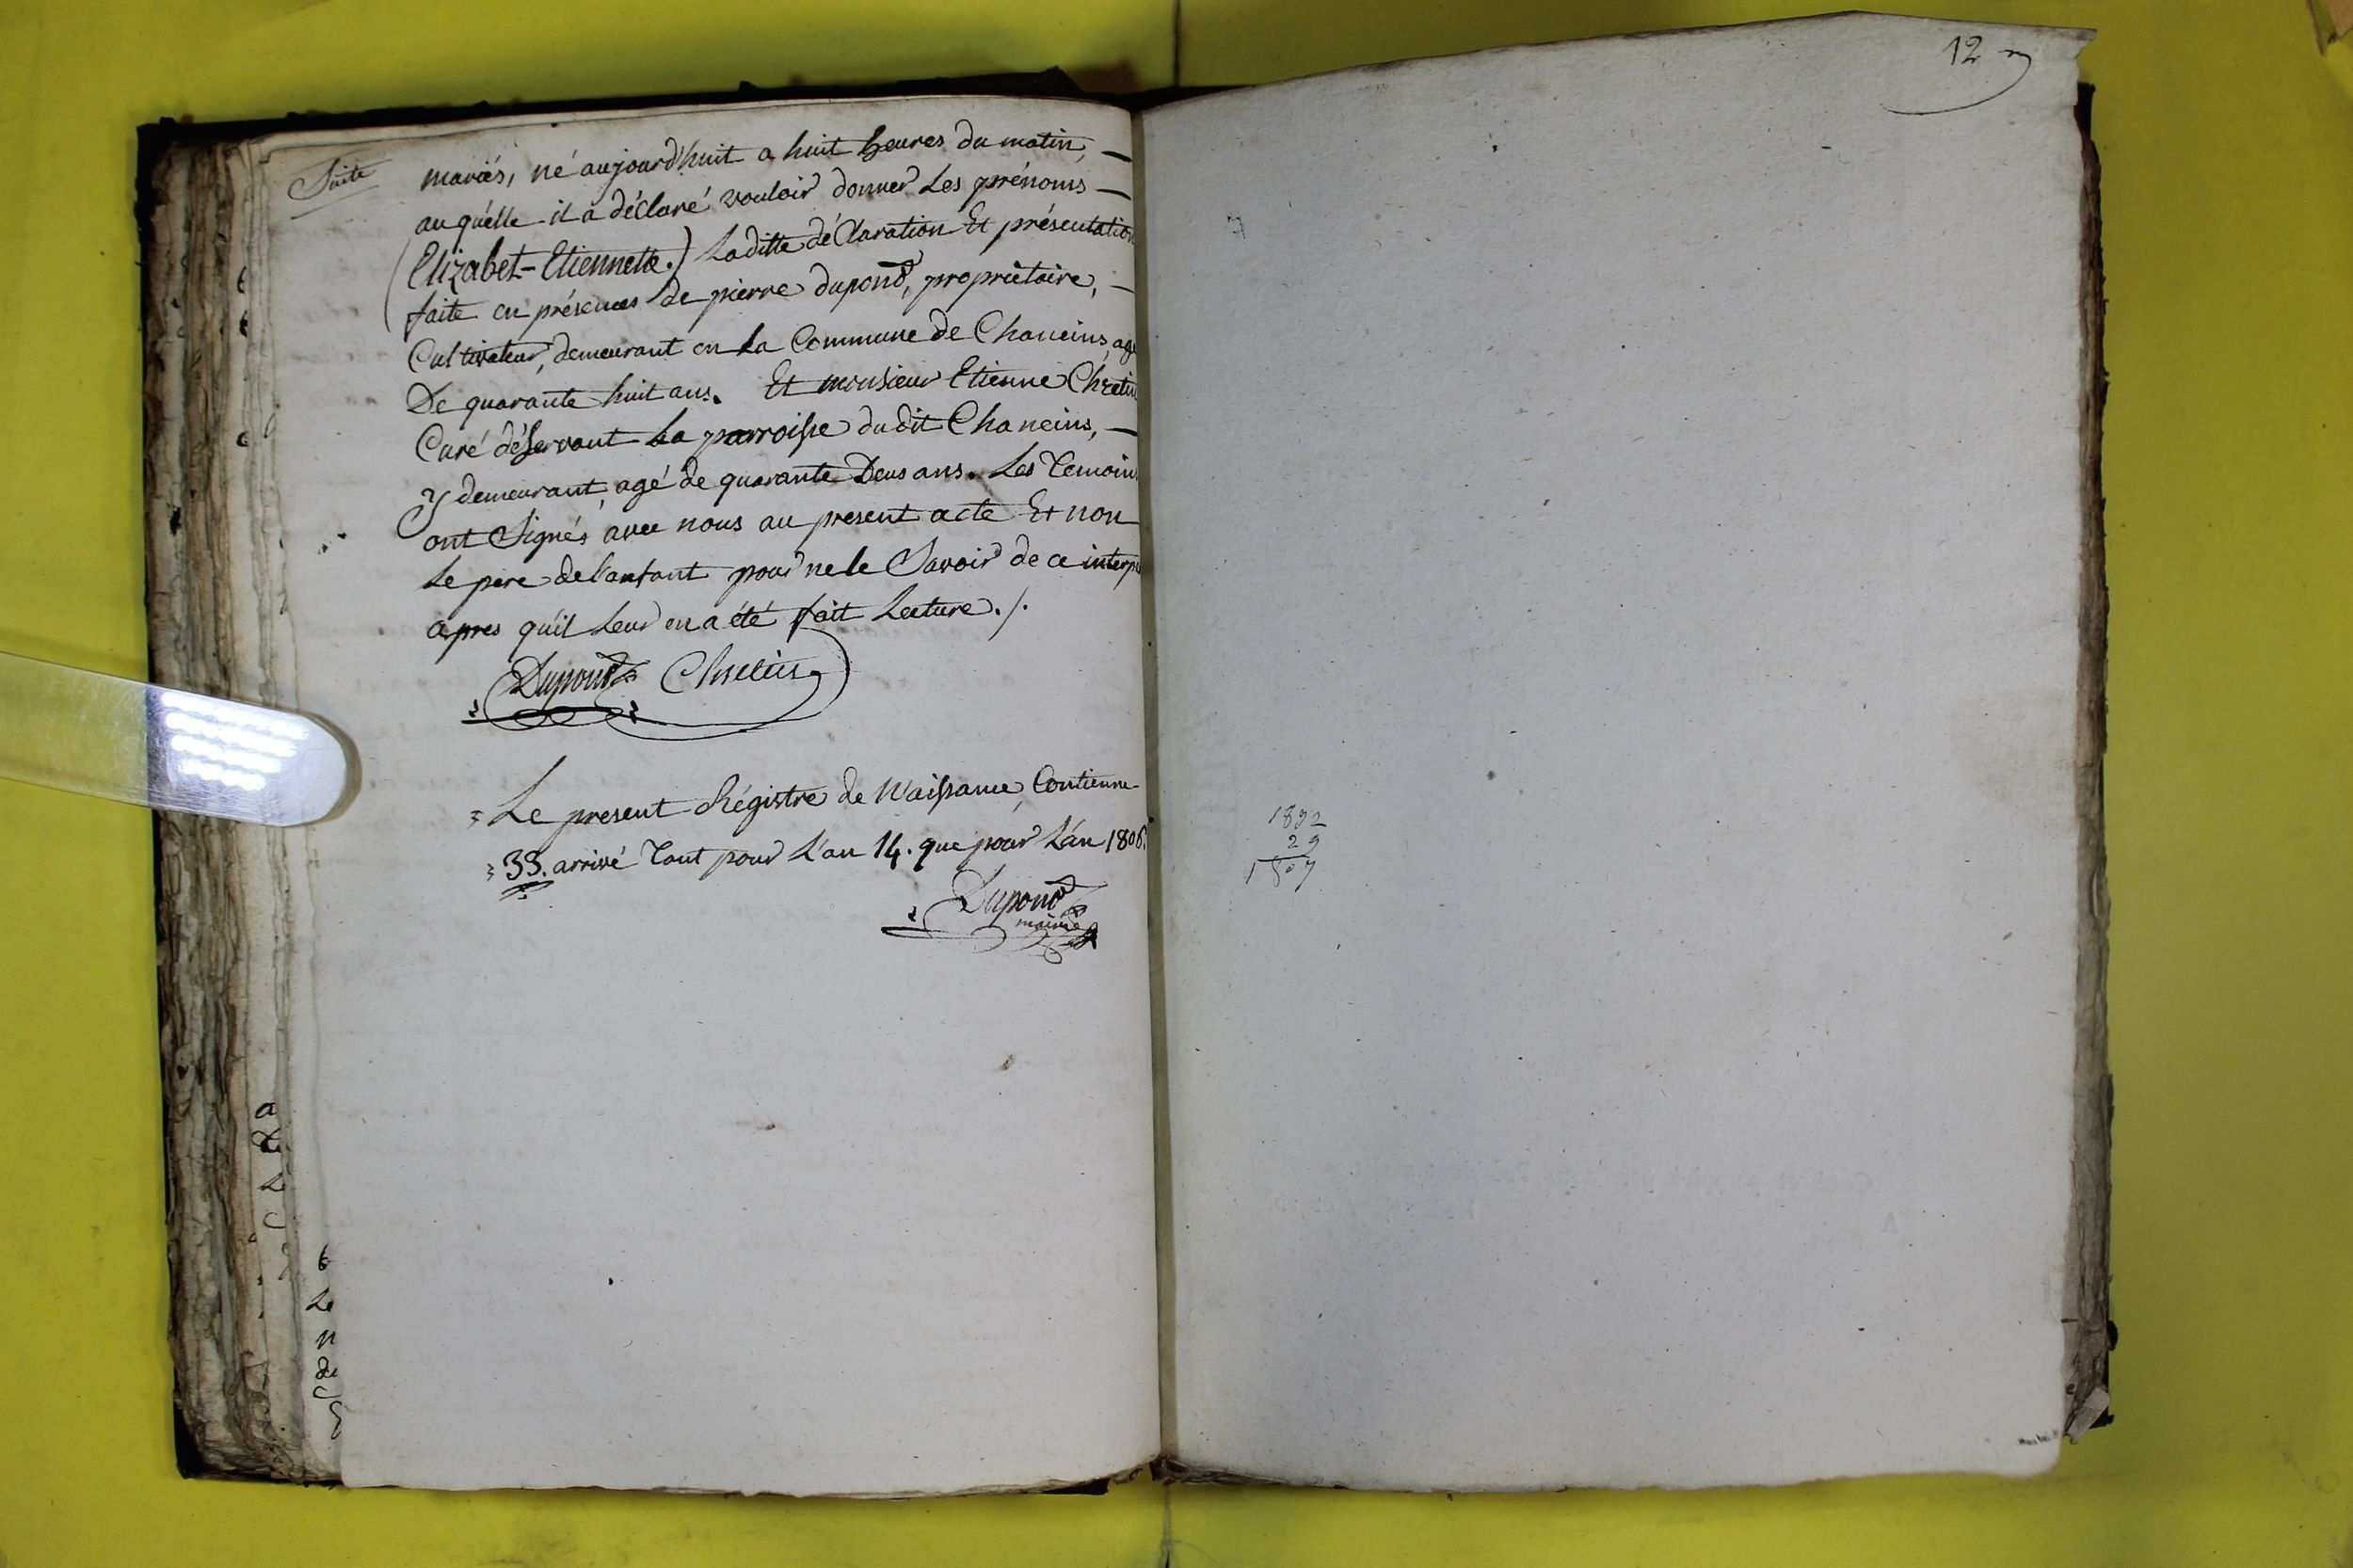 Suite
mariés, né aujourd'huit a huit heures du matin, —
auqu'elle il a déclaré vouloir donner Les prénoms —
(Elizabet-Etiennette.) Laditte déClaration Et présentation
faite en présences de pierre dupond, propriétaire, —
Cultivateur, demeurant en La Commune de Chaneins, agé
De quarante huit ans. Et monsieur Etienne Chretin
Curé désservant La parroisse dudit Chaneins, —
y demeurant, agé de quarante Deus ans. Les Temoins
ont Signés avec nous au present acte Et non
Le pere de l'anfant pour ne le Savoir de ce interp
apres qu'il Leur en a été fait Lecture./.
Dupond Chretin
Le present Régistre de Naissance, Contienne
33. arrivé Tant pour L'an 14. que pour L'an 1806.
Dupond
maire
12
29